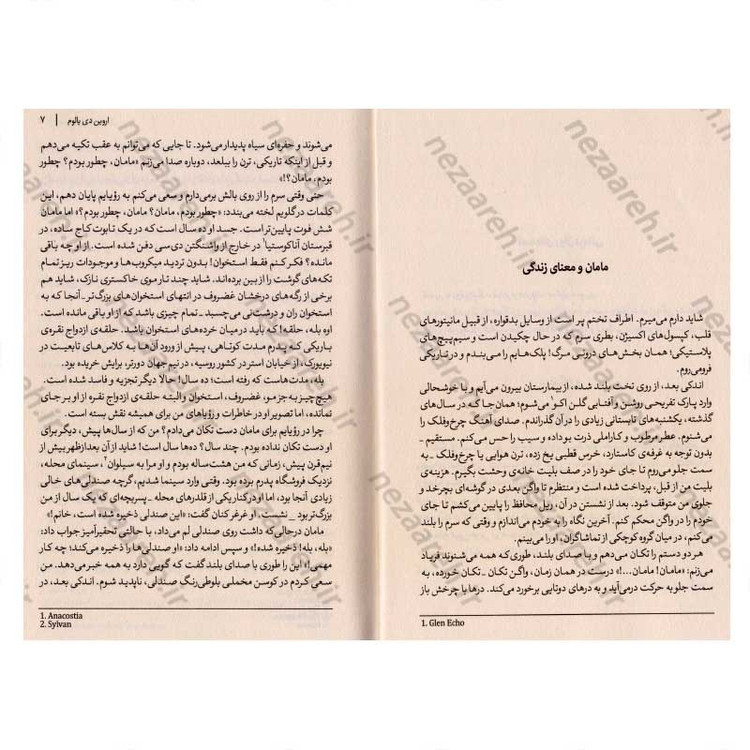 مامان و معنای زندگی
شاید دارم می‌میرم. اطراف تختم پر است از وسایل بدقواره، از قبیل مانیتورهای
قلب، کپسول‌های اکسیژن، بطری سرم که در حال چکیدن است و سیم‌پیچ‌های
پلاستیکی؛ همان بخش‌های درونی مرگ! پلک‌هایم را می‌بندم و در تاریکی
فرومی‌روم.
اندکی بعد، از روی تخت بلند شده، از بیمارستان بیرون می‌آیم و با خوشحالی
وارد پارک تفریحی روشن و آفتابی گلن اکو¹ می‌شوم؛ همان‌جا که در سال‌های
گذشته، یکشنبه‌های تابستانی زیادی را در آن گذراندم. صدای آهنگ چرخ‌وفلک را
می‌شنوم. عطر مرطوب و کاراملی ذرت بوداده و سیب را حس می‌کنم. مستقیم -
بدون توجه به غرفه‌ی کاستارد، خرس قطبی یخ زده، ترن هوایی یا چرخ‌وفلک - به
سمت جلو می‌روم تا جای خود را در صف بلیت خانه‌ی وحشت بگیرم. هزینه‌ی
بلیت من از قبل، پرداخت شده است و منتظرم تا واگن بعدی در گوشه‌ای بچرخد و
جلوی من متوقف شود. بعد از نشستن در آن، ریل محافظ را پایین می‌کشم تا جای
خودم را در واگن محکم کنم. آخرین نگاه را به خودم می‌اندازم و وقتی که سرم را بلند
می‌کنم، در میان گروه کوچکی از تماشاگران، او را می‌بینم.
هر دو دستم را تکان می‌دهم و با صدای بلند، طوری‌که همه می‌شنوند فریاد
می‌زنم: «مامان! مامان...!» درست در همان زمان، واگن تکان - تکان خورده، به
سمت جلو به حرکت درمی‌آید و به درهای دوتایی برخورد می‌کند. درها با چرخش باز
1. Glen Echo
اروین دی یالوم | ۷
می‌شوند و حفره‌ای سیاه پدیدار می‌شود. تا جایی که می‌توانم به عقب تکیه می‌دهم
و قبل از اینکه تاریکی، ترن را ببلعد، دوباره صدا می‌زنم «مامان، چطور بودم؟ چطور
بودم، مامان؟!»
حتی وقتی سرم را از روی بالش برمی‌دارم و سعی می‌کنم به رؤیایم پایان دهم، این
کلمات در گلویم لخته می‌بندد: «چطور بودم، مامان؟ مامان، چطور بودم؟» اما مامان
شش فوت پایین‌تر است. جسد او ده سال است که در یک تابوت کاج ساده، در
قبرستان آناکوستیا¹ در خارج از واشنگتن دی‌سی دفن شده است. از او چه باقی
مانده؟ فکر کنم فقط استخوان! بدون تردید میکروب‌ها و موجودات ریز تمام
تکه‌های گوشت را از بین برده‌اند. شاید چند تار موی خاکستری نازک، شاید هم
برخی از رگه‌های درخشان غضروف در انتهای استخوان‌های بزرگ‌تر - آنجا که به
استخوان ران و درشت‌نی می‌چسبد - تمام چیزی باشد که از او باقی مانده است.
اوه بله، حلقه! که باید در میان خرده‌های استخوان باشد. حلقه‌ی ازدواج نقره‌ی
باریکی که پدرم مدت کوتاهی، پیش از ورود آن‌ها به کلاس‌های تابعیت در
نیویورک، از خیابان استر در کشور روسیه، در نیم جهان دورتر، برایش خریده بود.
بله، مدت‌هاست که رفته است؛ ده سال! حالا دیگر تجزیه و فاسد شده است.
هیچ چیز به جز مو، غضروف، استخوان و البته حلقه‌ی ازدواج نقره از او بر جای
نمانده، اما تصویر او در خاطرات و رؤیاهای من برای همیشه نقش بسته است.
چرا در رؤیایم برای مامان دست تکان می‌دادم؟ من که از سال‌ها پیش، دیگر برای
او دست تکان نداده بودم. چند سال؟ ده‌ها سال است! شاید از آن بعدازظهر بیش از
نیم‌قرن پیش، زمانی که من هشت‌ساله بودم و او مرا به سیلوان²، سینمای محله،
نزدیک فروشگاه پدرم برده بود. وقتی وارد سینما شدیم، گرچه صندلی های خالی
زیادی آنجا بود، اما او در کنار یکی از قلدرهای محله - پسربچه‌ای که یک سال از من
بزرگ‌تر بود - نشست. او غرغرکنان گفت: «این صندلی ذخیره شده است، خانم!»
مامان درحالی‌که داشت روی صندلی لم می‌داد، با حالتی تحقیرآمیز جواب داد:
«بله، بله! ذخیره شده!» و سپس ادامه داد: «او صندلی‌ها را ذخیره می‌کند؛ چه کار
مهمی!» این را طوری با صدای بلند گفت که گویی دارد به همه خبر می‌دهد. من
سعی کردم در کوسن مخملی بلوطی‌رنگ صندلی، ناپدید شوم. اندکی بعد، در
1. Anacostia
2. Sylvan
nezaareh.ir
nezaareh.ir
nezaareh.ir
nezaareh.ir
nezaareh.ir
nezaareh.ir